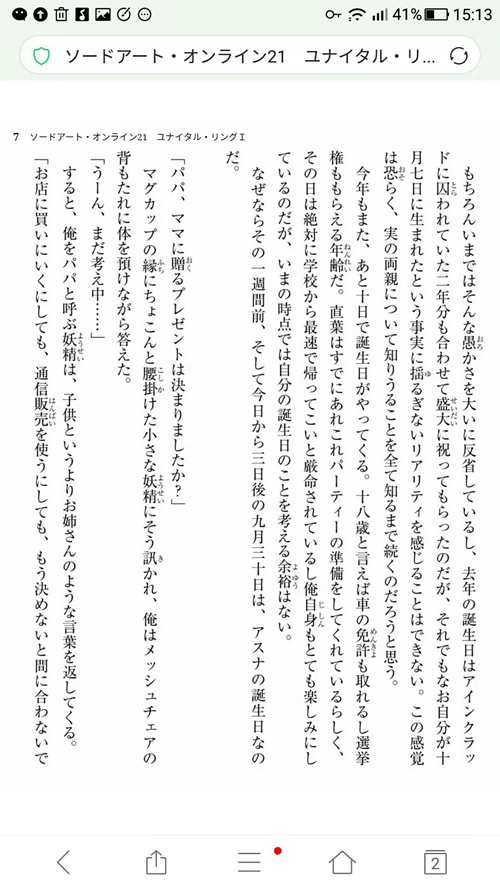 41% 15:13
ソードアート・オンライン21　ユナイタル・リ...
7　ソードアート・オンライン21　ユナイタル・リングⅠ
　もちろんいまではそんな愚かさを大いに反省しているし、去年の誕生日はアインクラッ
ドに囚われていた二年分も合わせて盛大に祝ってもらったのだが、それでもなお自分が十
月七日に生まれたという事実に揺るぎないリアリティを感じることはできない。この感覚
は恐らく、実の両親について知りうることを全て知るまで続くのだろうと思う。
　今年もまた、あと十日で誕生日がやってくる。十八歳と言えば車の免許も取れるし選挙
権ももらえる年齢だ。直葉はすでにあれこれパーティーの準備をしてくれているらしく、
その日は絶対に学校から最速で帰ってこいと厳命されているし俺自身もとても楽しみにし
ているのだが、いまの時点では自分の誕生日のことを考える余裕はない。
　なぜならその一週間前、そして今日から三日後の九月三十日は、アスナの誕生日なの
だ。
「パパ、ママに贈るプレゼントは決まりましたか？」
　マグカップの縁にちょこんと腰掛けた小さな妖精にそう訊かれ、俺はメッシュチェアの
背もたれに体を預けながら答えた。
「うーん、まだ考え中……」
　すると、俺をパパと呼ぶ妖精は、子供というよりお姉さんのような言葉を返してくる。
「お店に買いにいくにしても、通信販売を使うにしても、もう決めないと間に合わないで
2